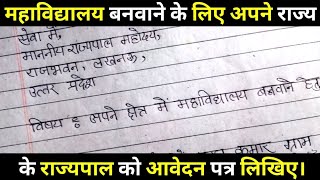 महाविद्यालय बनवाने के लिए अपने राज्य
सेवा में,
माननीय राज्यपाल महोदय,
राजभवन, लखनऊ,
उत्तर प्रदेश
विषय : अपने क्षेत्र में महाविद्यालय बनवाने हेतु
कुमार ग्राम
के राज्यपाल को आवेदन पत्र लिखिए।